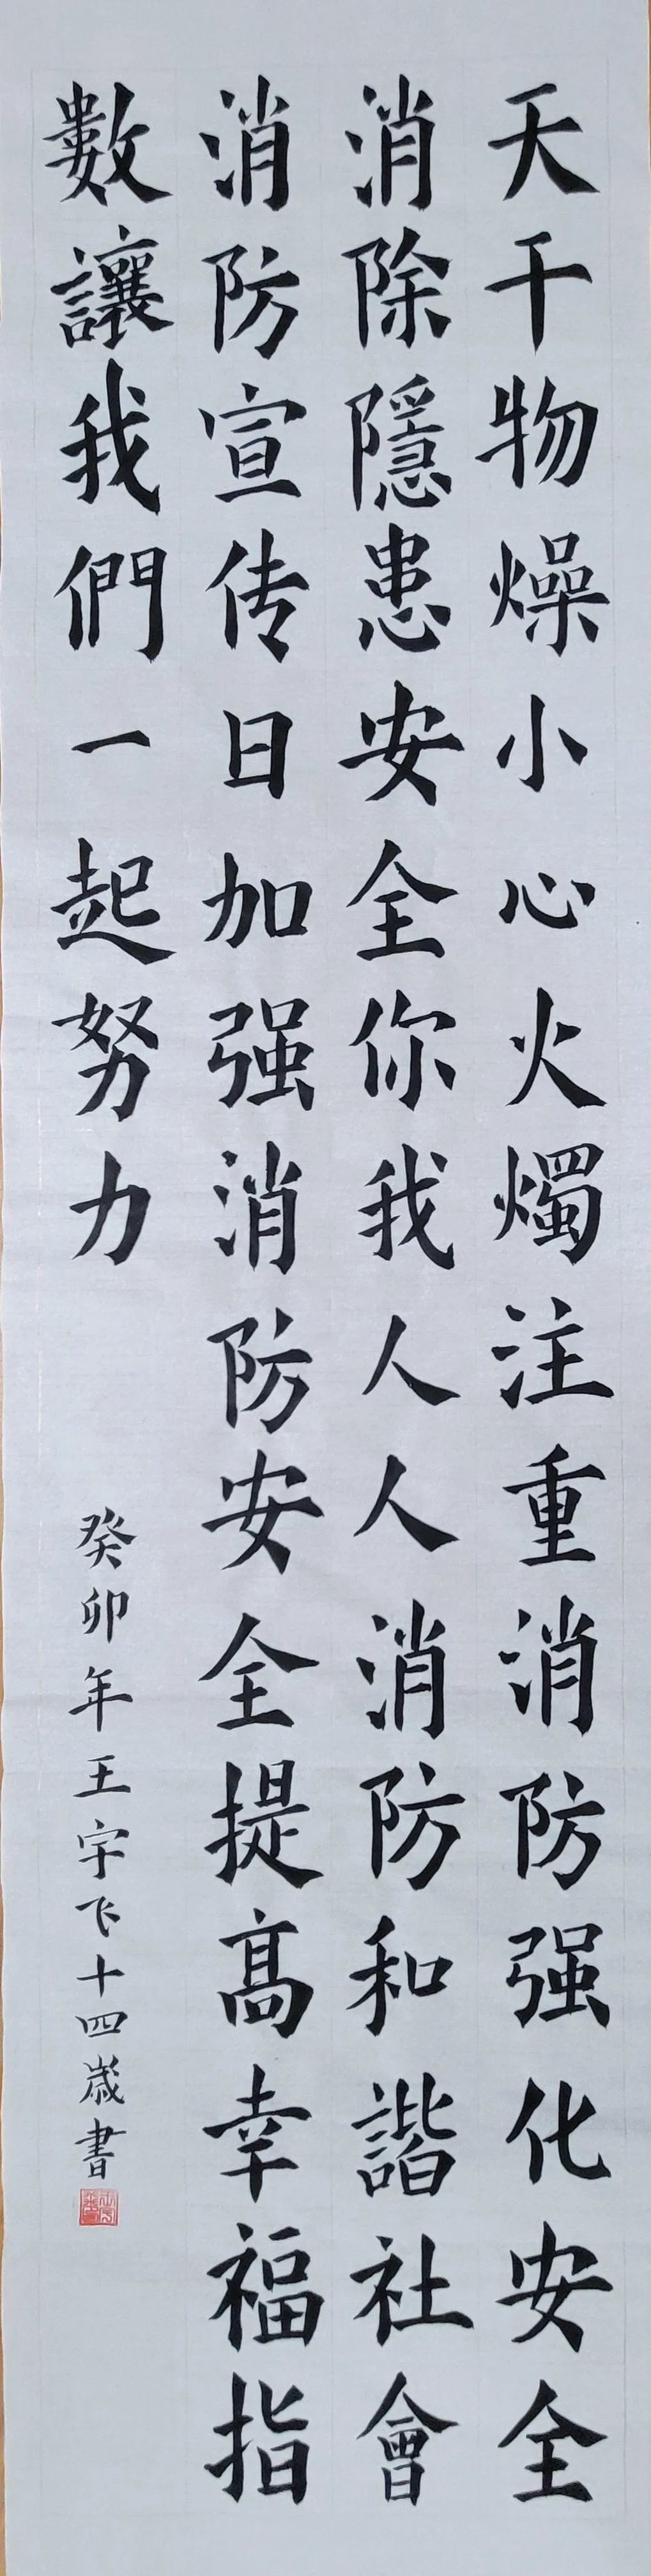 天干物燥小心火燭注重消防强化安全
消除隱患安全你我人人消防和諧社會
消防宣传日加强消防安全提髙幸福指
數讓我們一起努力
癸卯年王宇飞十四歲書